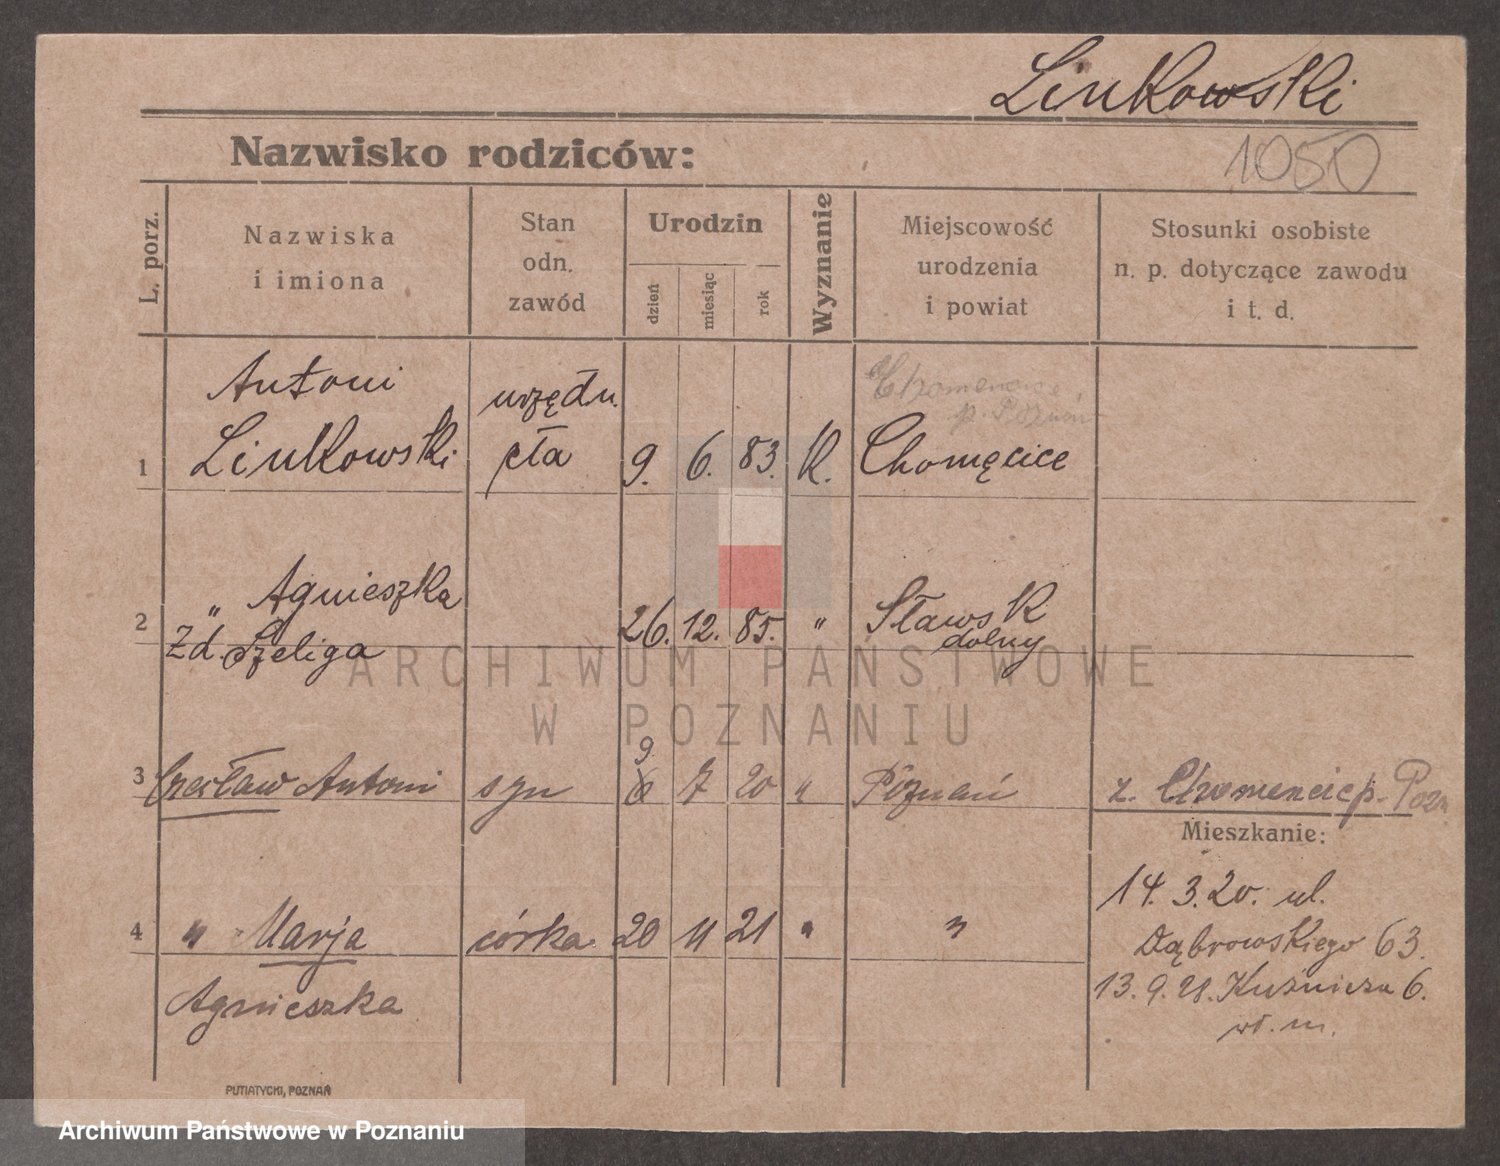 Linkowski
1050
Nazwisko rodziców:
L. porz.
Nazwiska
i imiona
Stan
odn.
zawód
Urodzin
dzień
miesiąc
rok
Wyznanie
Miejscowość
urodzenia
i powiat
Stosunki osobiste
n. p. dotyczące zawodu
i t. d.
Antoni
urzędn.
1 Linkowski 9. 6. 83. K. Chomęcice
2 " Agnieszka 26. 12. 85. " Sławsk
Zd. Szeliga dolny
ARCHIWUM PAŃSTWOWE
W POZNANIU
9
3 Czesław Antoni syn 6 7 20 " Poznań z.
Mieszkanie:
14. 3. 20. ul.
4 " Marja córka 20 11 21 " " Dąbrowskiego 63.
Agnieszka 13. 9. 21. Kuźnicza 6.
PUTIATYCKI, POZNAŃ
Archiwum Państwowe w Poznaniu